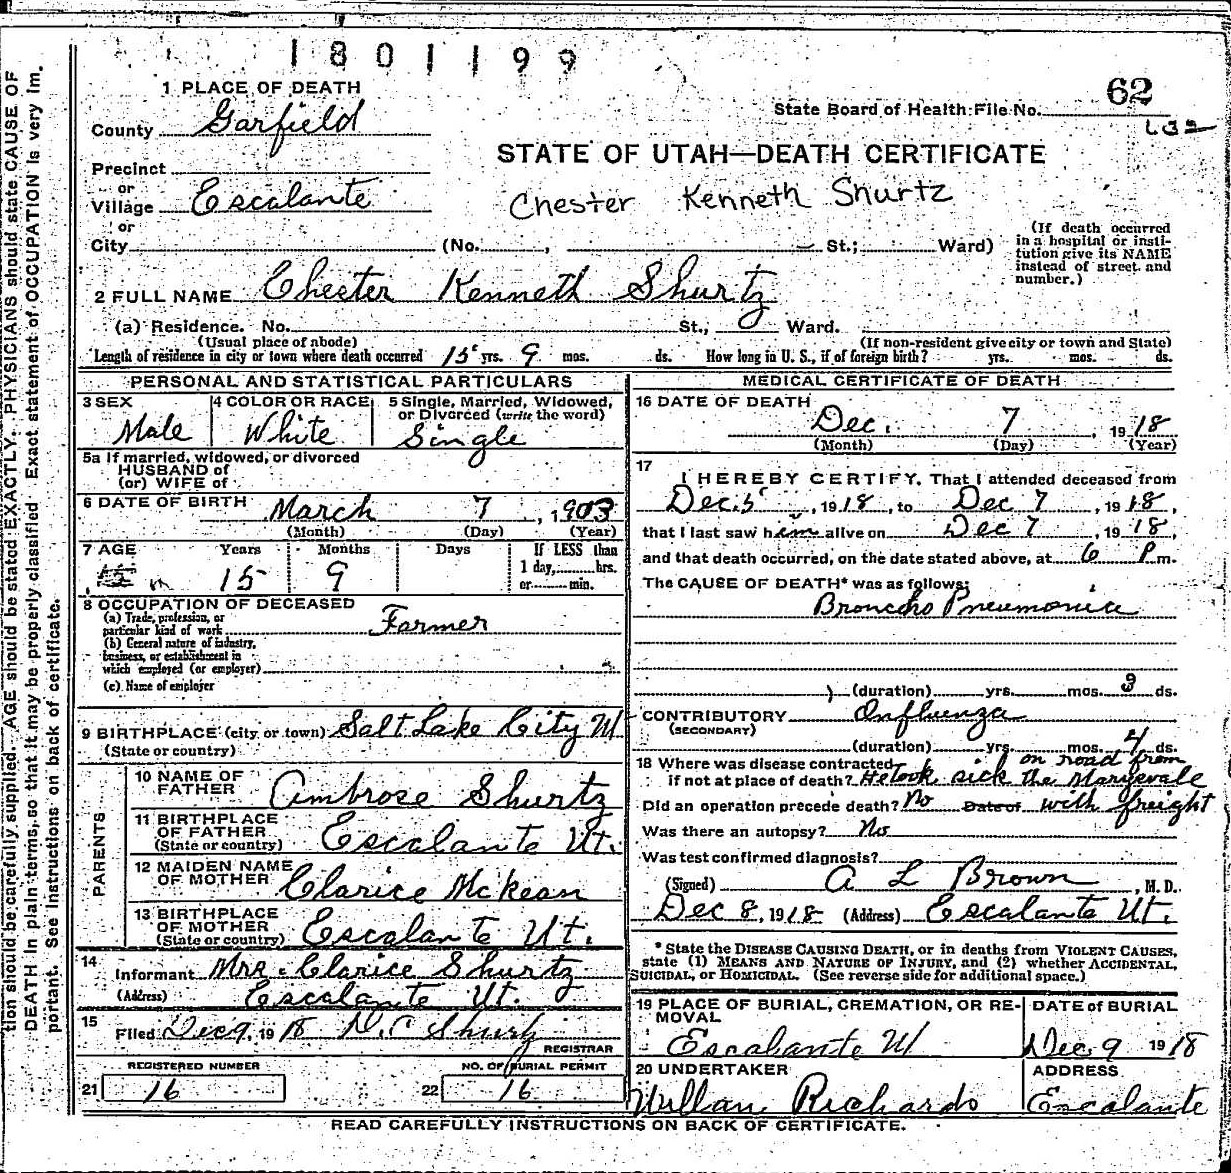 1801199
1 PLACE OF DEATH
State Board of Health File No. 62
County Garfield
STATE OF UTAH—DEATH CERTIFICATE
Precinct
or
Village Escalante
Chester Kenneth Shurtz
or
City (No. , St.; Ward)
(If death occurred in a hospital or insti-
tution give its NAME
instead of street and
number.)
2 FULL NAME Chester Kenneth Shurtz
(a) Residence. No. St., Ward.
(Usual place of abode) (If non-resident give city or town and State)
Length of residence in city or town where death occurred 15 yrs. 9 mos. ds. How long in U. S., if of foreign birth? yrs. mos. ds.
PERSONAL AND STATISTICAL PARTICULARS
3 SEX Male
4 COLOR OR RACE White
5 Single, Married, Widowed,
or Divorced (write the word)
Single
5a If married, widowed, or divorced
HUSBAND of
(or) WIFE of
6 DATE OF BIRTH March 7, 1903
(Month) (Day) (Year)
7 AGE Years Months Days If LESS than
1 day, hrs.
or min.
15 9
8 OCCUPATION OF DECEASED
(a) Trade, profession, or
particular kind of work Farmer
(b) General nature of industry,
business, or establishment in
which employed (or employer)
(c) Name of employer
9 BIRTHPLACE (city or town) Salt Lake City U
(State or country)
PARENTS
10 NAME OF
FATHER Ambrose Shurtz
11 BIRTHPLACE
OF FATHER
(State or country) Escalante Ut.
12 MAIDEN NAME
OF MOTHER Clarice McKean
13 BIRTHPLACE
OF MOTHER
(State or country) Escalante Ut.
14
Informant Mrs. Clarice Shurtz
(Address) Escalante Ut.
15
Filed Dec 9, 1918 D. C. Shurtz
REGISTRAR
REGISTERED NUMBER
21 16
NO. OF BURIAL PERMIT
22 16
MEDICAL CERTIFICATE OF DEATH
16 DATE OF DEATH
Dec. 7, 1918
(Month) (Day) (Year)
17
I HEREBY CERTIFY, That I attended deceased from
Dec. 5, 1918, to Dec 7, 1918,
that I last saw him alive on Dec 7, 1918,
and that death occurred, on the date stated above, at 6 P m.
The CAUSE OF DEATH* was as follows:
Broncho Pneumonia
(duration) yrs. mos. 3 ds.
CONTRIBUTORY Influenza
(SECONDARY)
(duration) yrs. mos. 4 ds.
18 Where was disease contracted on road from
if not at place of death? He took sick the Marysvale
Did an operation precede death? No Date of with freight
Was there an autopsy? No
Was test confirmed diagnosis?
(Signed) A L Brown, M. D.
Dec 8, 1918 (Address) Escalante Ut.
* State the DISEASE CAUSING DEATH, or in deaths from VIOLENT CAUSES,
state (1) MEANS AND NATURE OF INJURY, and (2) whether ACCIDENTAL,
SUICIDAL, or HOMICIDAL. (See reverse side for additional space.)
19 PLACE OF BURIAL, CREMATION, OR RE-
MOVAL
Escalante U
DATE of BURIAL
Dec 9 1918
20 UNDERTAKER
Willam Richards
ADDRESS
Escalante
READ CAREFULLY INSTRUCTIONS ON BACK OF CERTIFICATE.
tion should be carefully supplied. AGE should be stated EXACTLY. PHYSICIANS should state CAUSE OF
DEATH in plain terms, so that it may be properly classified. Exact statement of OCCUPATION is very im-
portant. See instructions on back of certificate.